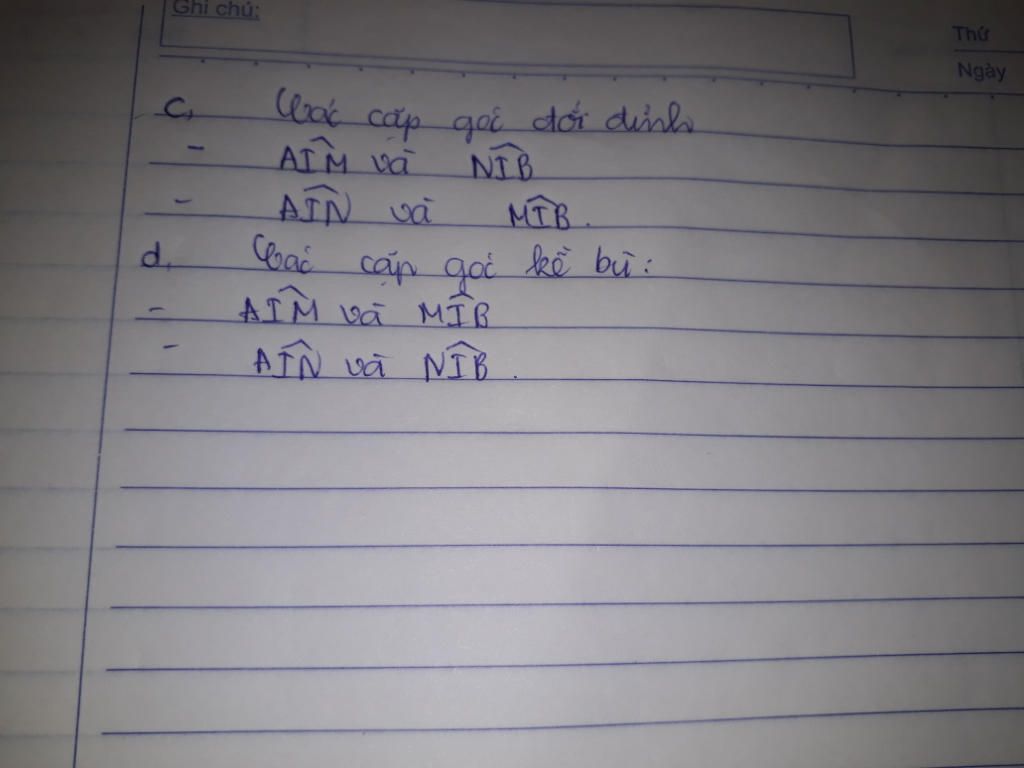 Ghi chú:
Thứ
Ngày
c, Các cặp góc đối đỉnh
- AIM̂ và NIB̂
- AIN̂ và MIB̂.
d. Các cặp góc kề bù:
- AIM̂ và MIB̂
- AIN̂ và NIB̂.